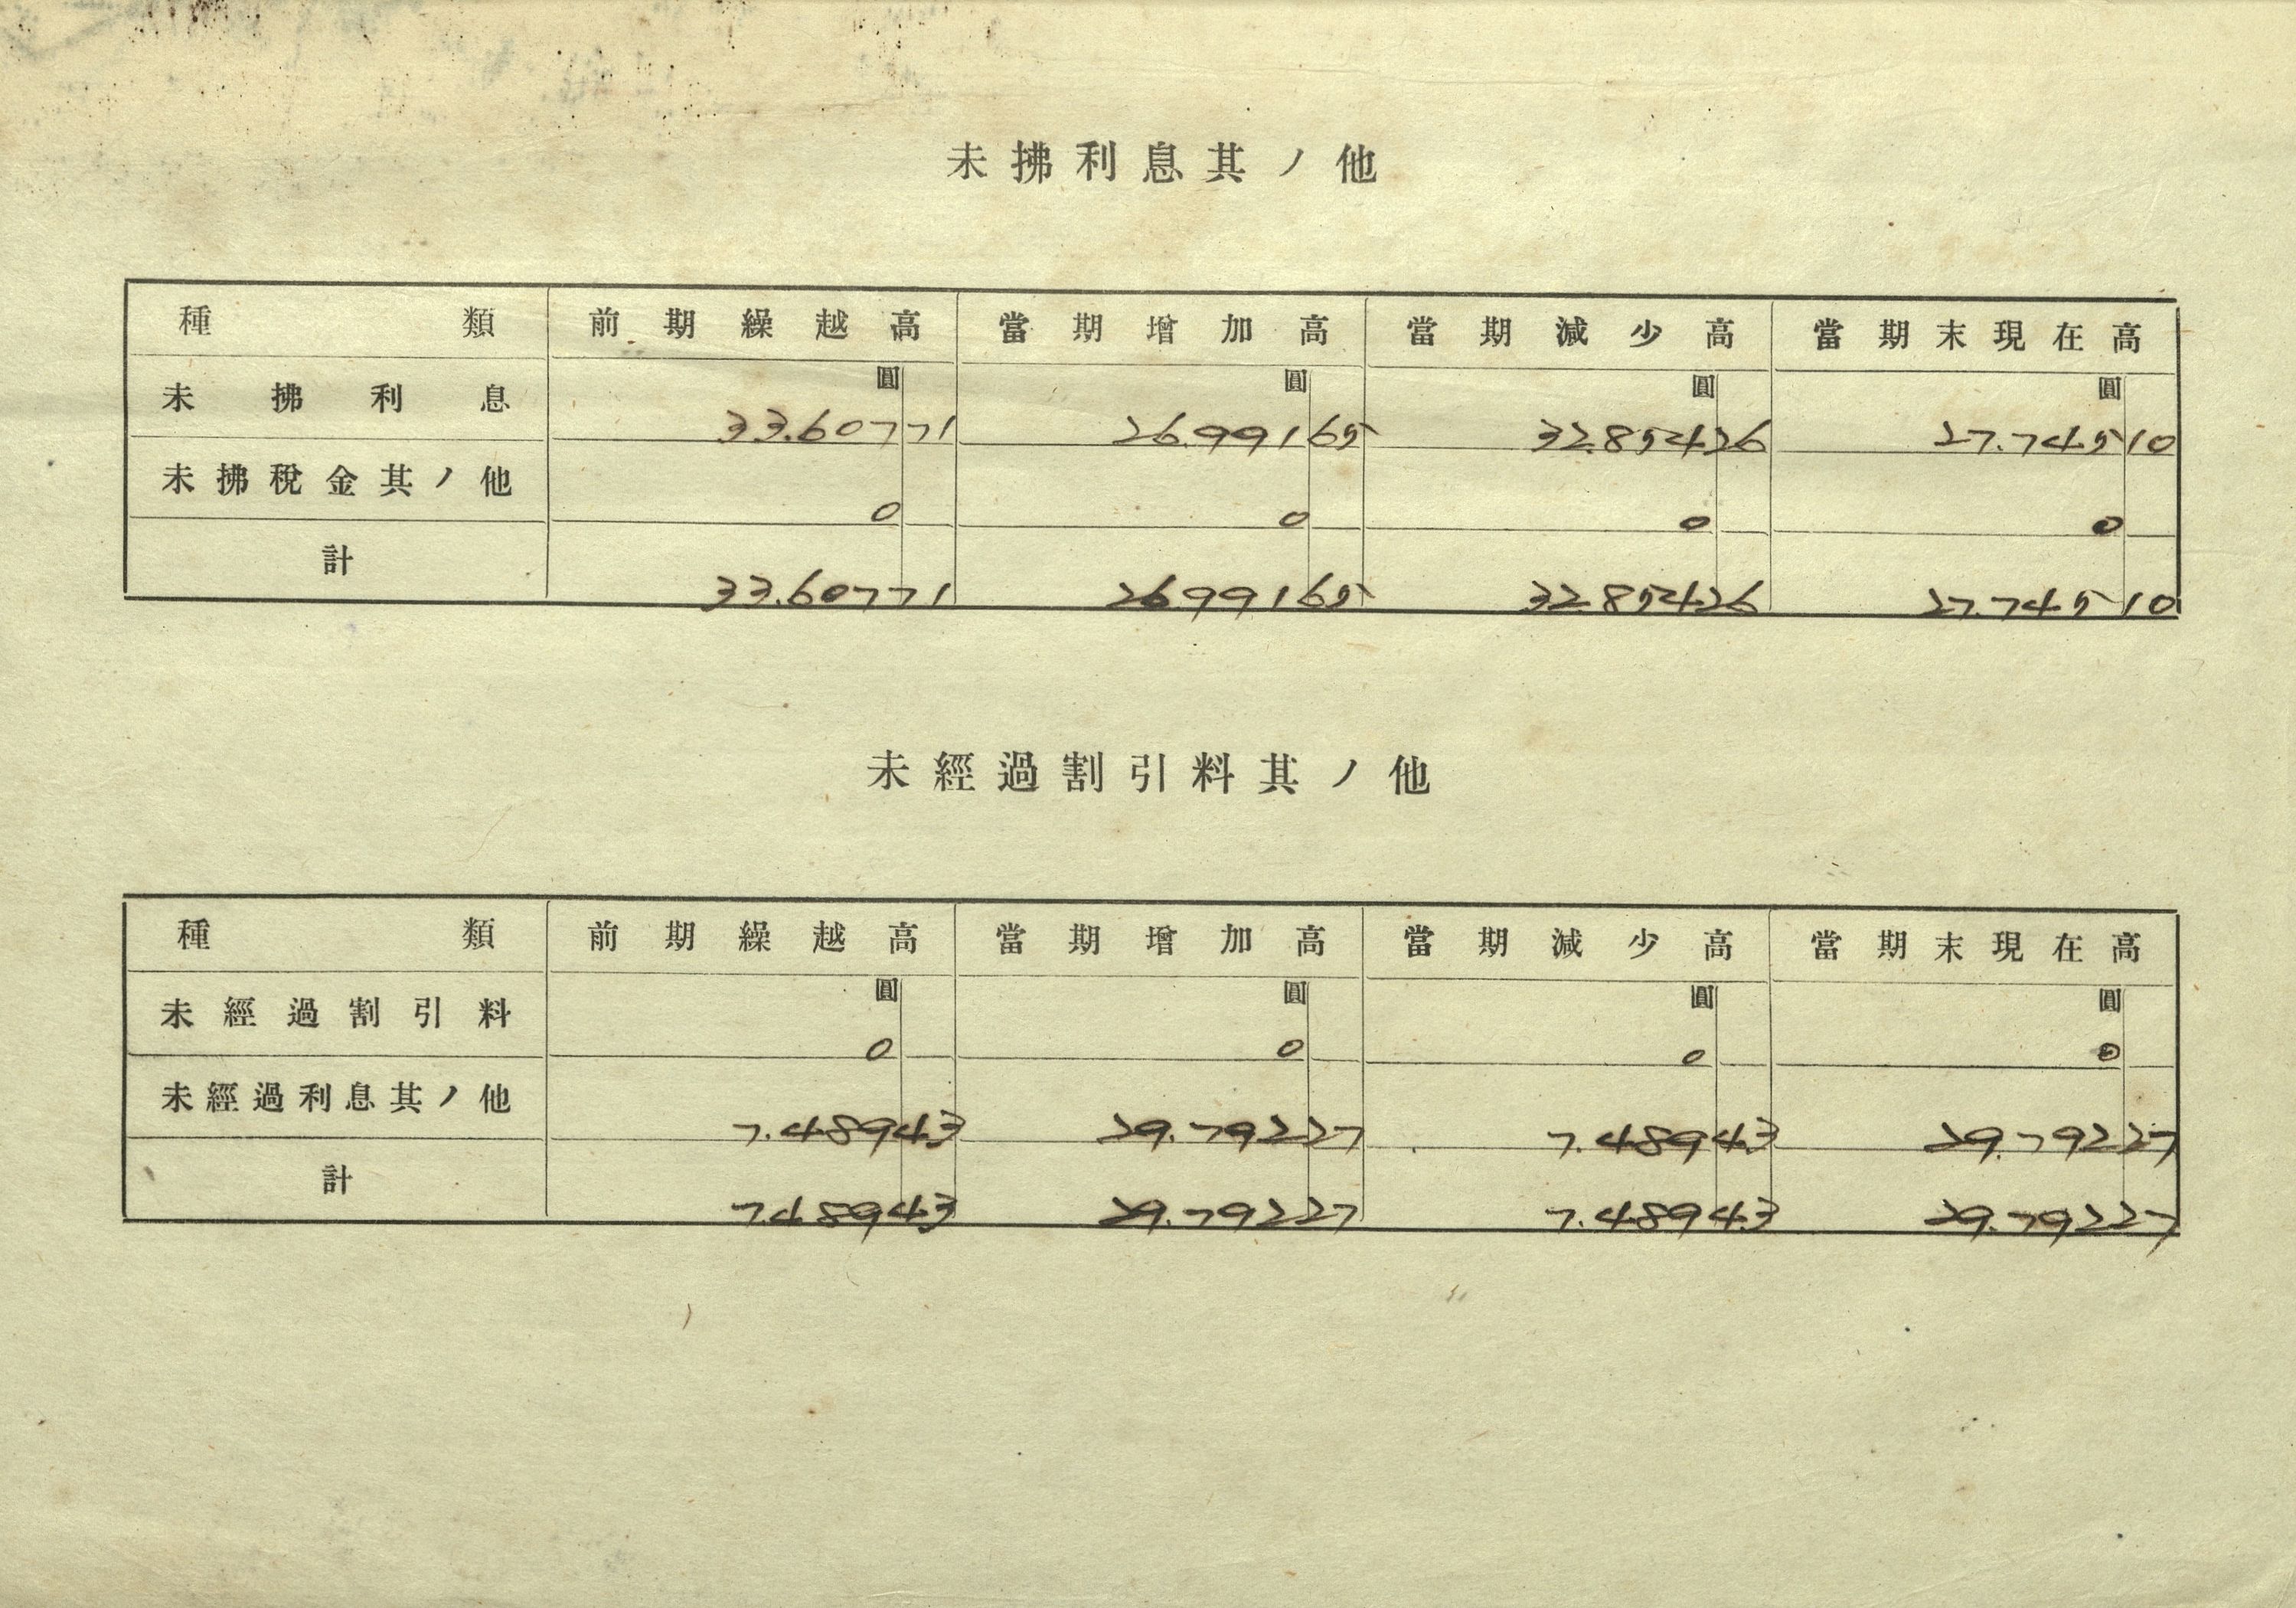 未拂利息其ノ他
種類 前期繰越高 當期增加高 當期減少高 當期末現在高
圓 圓 圓 圓
未拂利息 33.607 71 26.991 65 32.854 26 27.745 10
未拂稅金其ノ他 0 0 0 0
計 33.607 71 26.991 65 32.854 26 27.745 10
未經過割引料其ノ他
種類 前期繰越高 當期增加高 當期減少高 當期末現在高
圓 圓 圓 圓
未經過割引料 0 0 0 0
未經過利息其ノ他 7.489 43 29.792 27 7.489 43 29.792 27
計 7.489 43 29.792 27 7.489 43 29.792 27